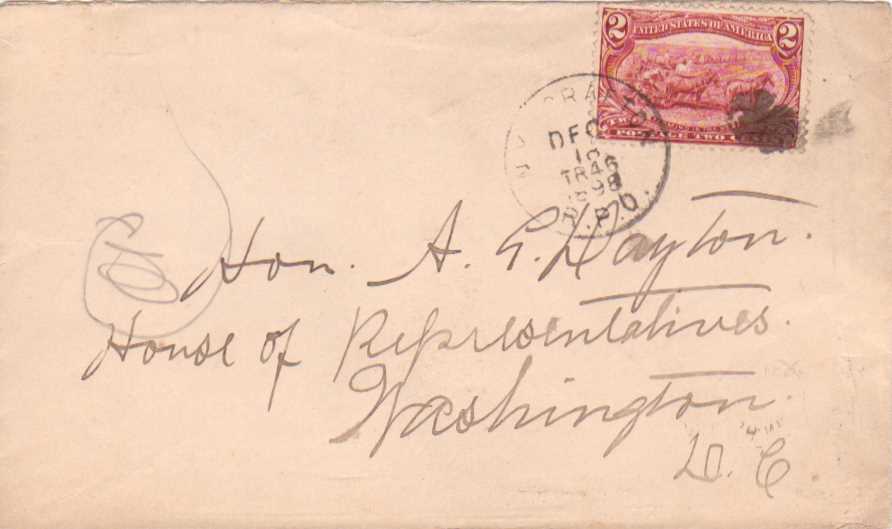 2 UNITED STATES OF AMERICA 2
POSTAGE TWO
DEC
TR46
1898
R.P.O.
Hon. A. G. Dayton.
House of Representatives.
Washington.
D. C